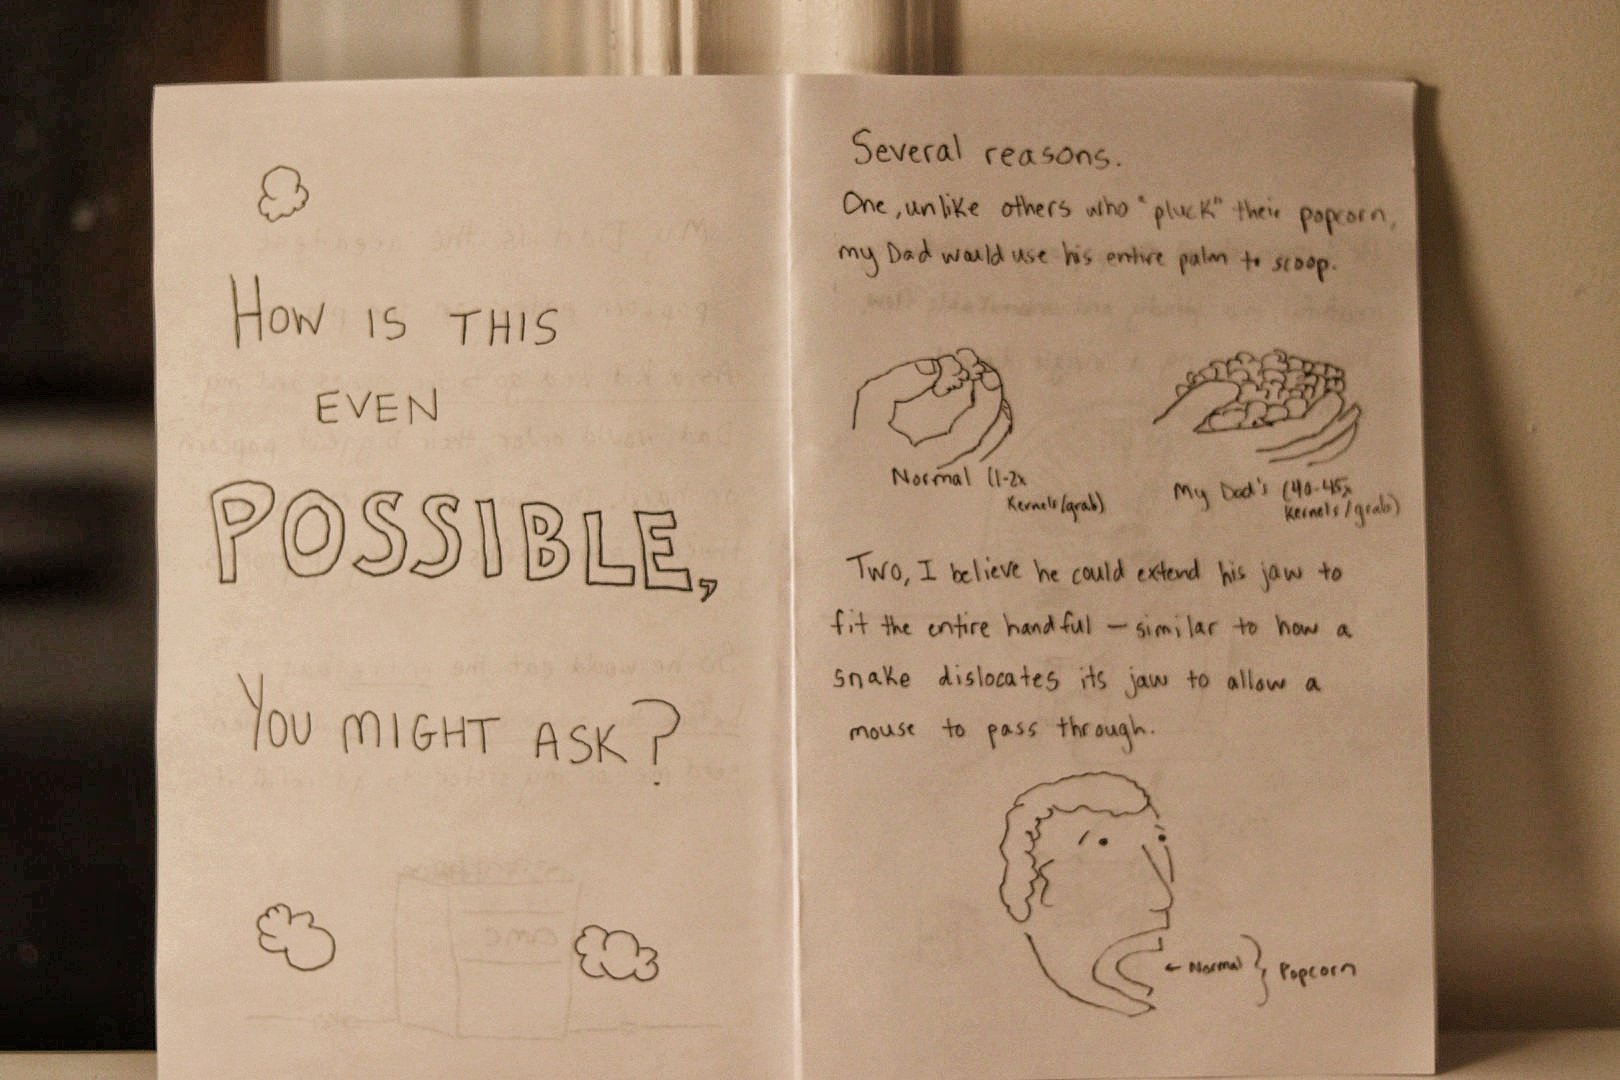 HOW IS THIS
EVEN
POSSIBLE,
YOU MIGHT ASK?
Several reasons.
One, unlike others who "pluck" their popcorn,
my Dad would use his entire palm to scoop.
Normal (1-2x
Kernels/grab)
My Dad's (40-45x
Kernels/grab)
Two, I believe he could extend his jaw to
fit the entire handful – similar to how a
snake dislocates its jaw to allow a
mouse to pass through.
← Normal } Popcorn